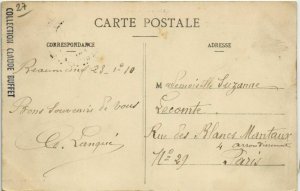 27
COLLECTION CLAUDE BUFFET
CARTE POSTALE
CORRESPONDANCE
ADRESSE
Beaumont 23-1-10
Bons Souvenirs de vous
Mademoiselle Suzanne
Lecomte
Rue des Blancs Mantaux
4 arrondissement
No 29
Paris